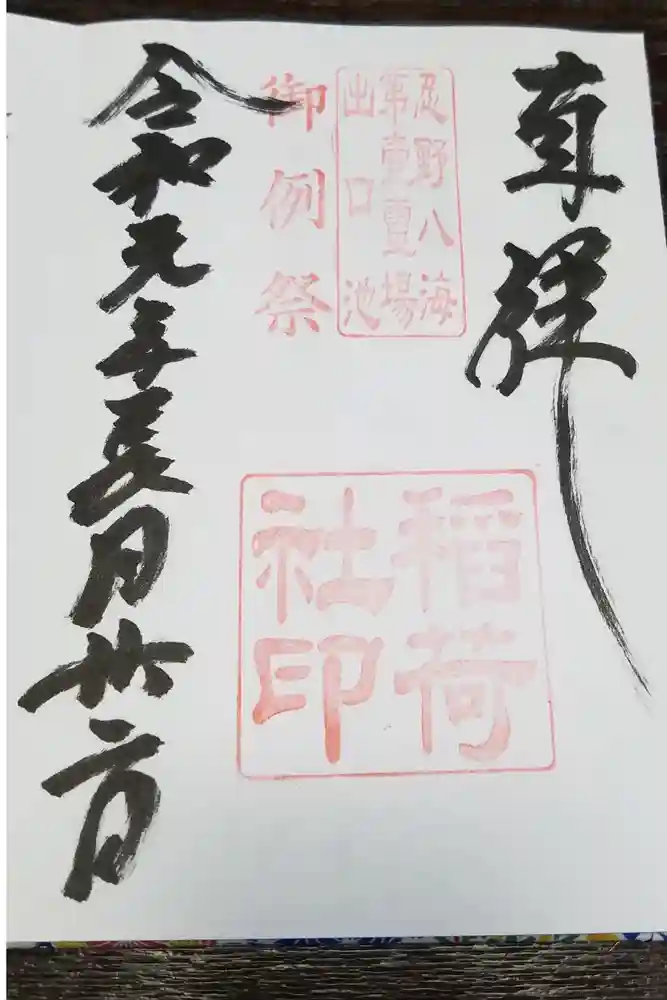 直拝
忍野八海
第壹霊場
出口池
御例祭
稲荷
社印
令和元年五月廿二日